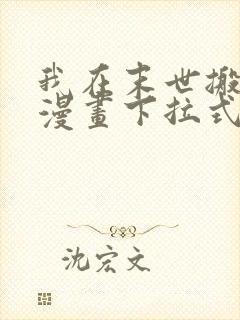 我在末世搬
漫畫下拉式
沈宏文